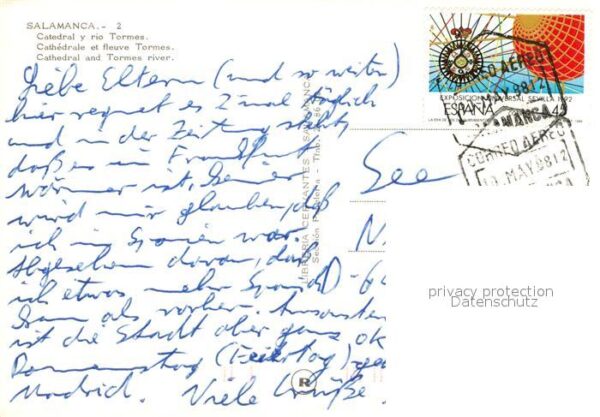 SALAMANCA. - 2
Catedral y rio Tormes.
Cathédrale et fleuve Tormes.
Cathedral and Tormes river.
Liebe Eltern (und so weiter)
hier regnet es 2 mal täglich
und in der Zeitung steht,
daß es in Frankfurt
wärmer ist, keiner
wird mir glauben, daß
ich in Spanien war.
Abgesehen davon, daß
ich etwas mehr Spanisch
kann als vorher. Ansonsten
ist die Stadt aber ganz ok
Donnerstag (Feiertag)
Madrid. Viele Grüße.
LIBRERIA CERVANTES - SALAMANCA
R
EXPOSICION UNIVERSAL SEVILLA 1992
ESPAÑA
CORREO AEREO
SALAMANCA
CORREO AEREO
MAY 88 12
N.
D-6
privacy protection
Datenschutz